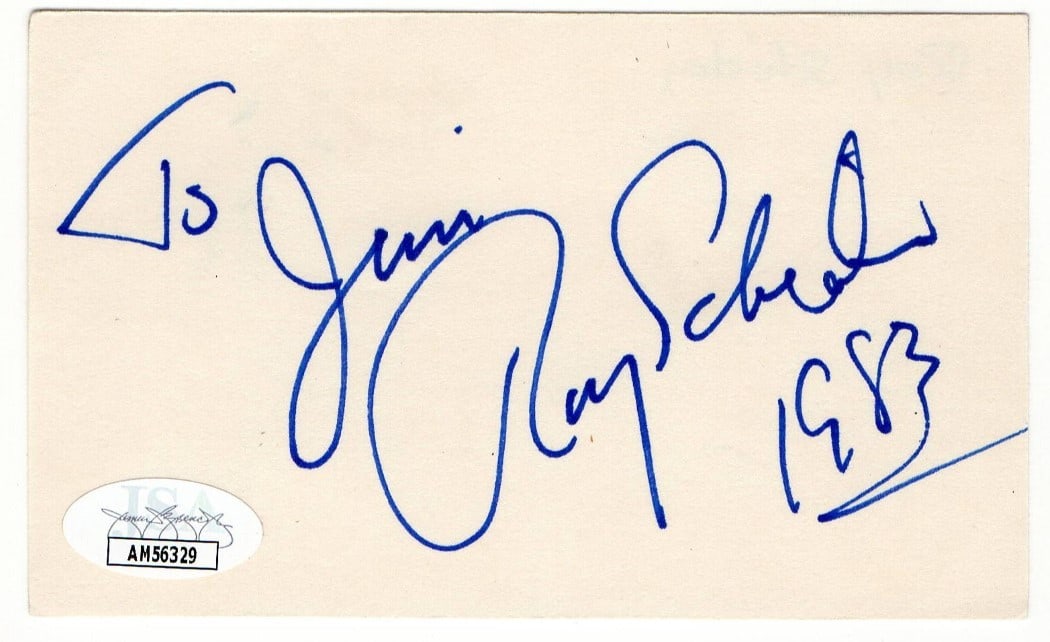 To Jim
Roy Scheider
1983
JSA
AM56329